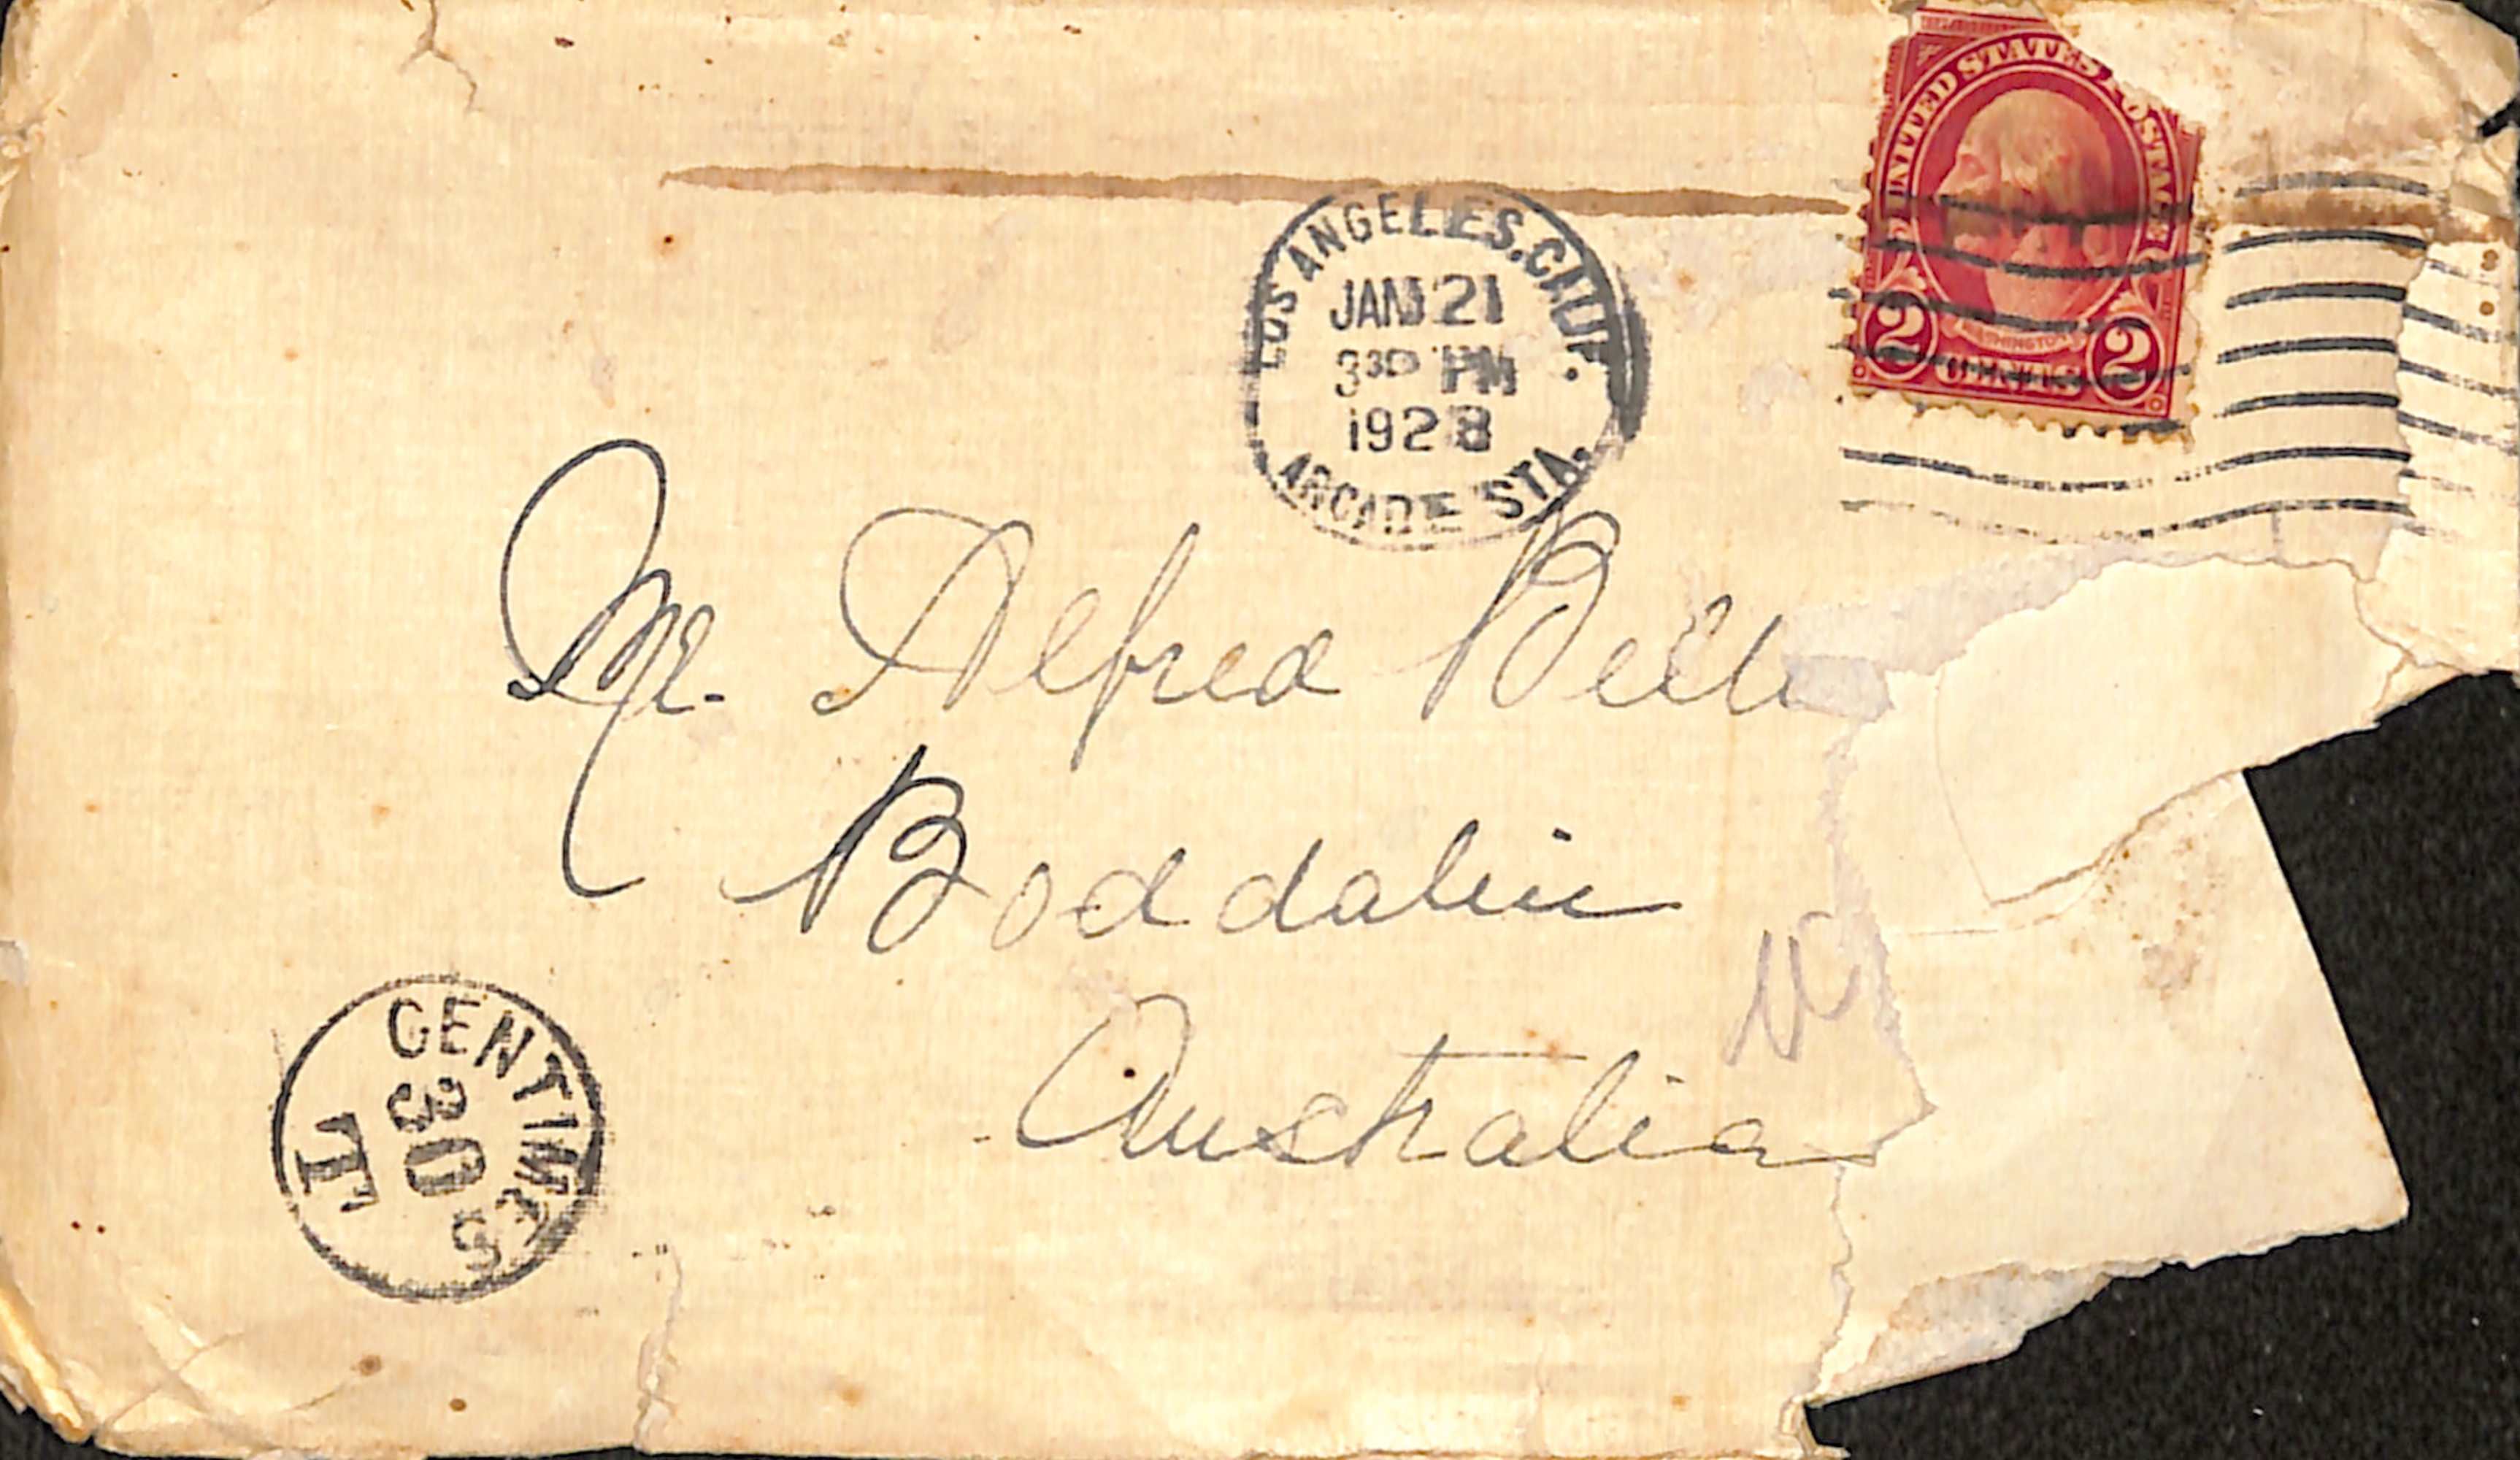 UNITED STATES POSTAGE
WASHINGTON
2 CENTS 2
LOS ANGELES, CALIF.
JAN 21
3 30 PM
1928
ARCADE STA.
Mr. Alfred Bell
Boddalin
Australia
CENTIMES
30
T